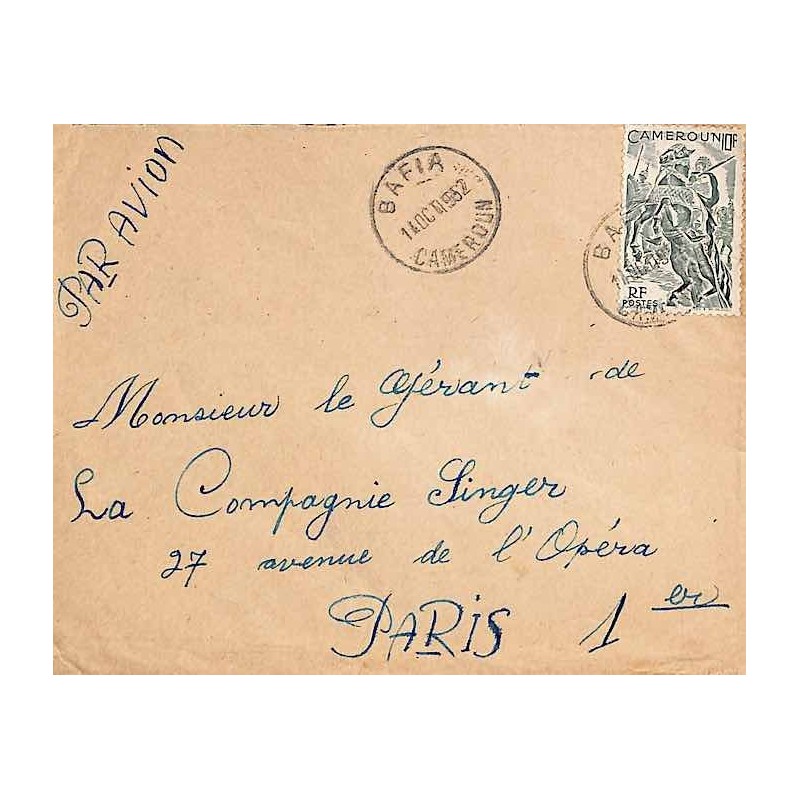 PAR AVION
BAFIA
14 OCT 1952
CAMEROUN
CAMEROUN 10F
RF
POSTES
BA
CAM
Monsieur le Gérant de
La Compagnie Singer
27 avenue de l'Opéra
PARIS 1er